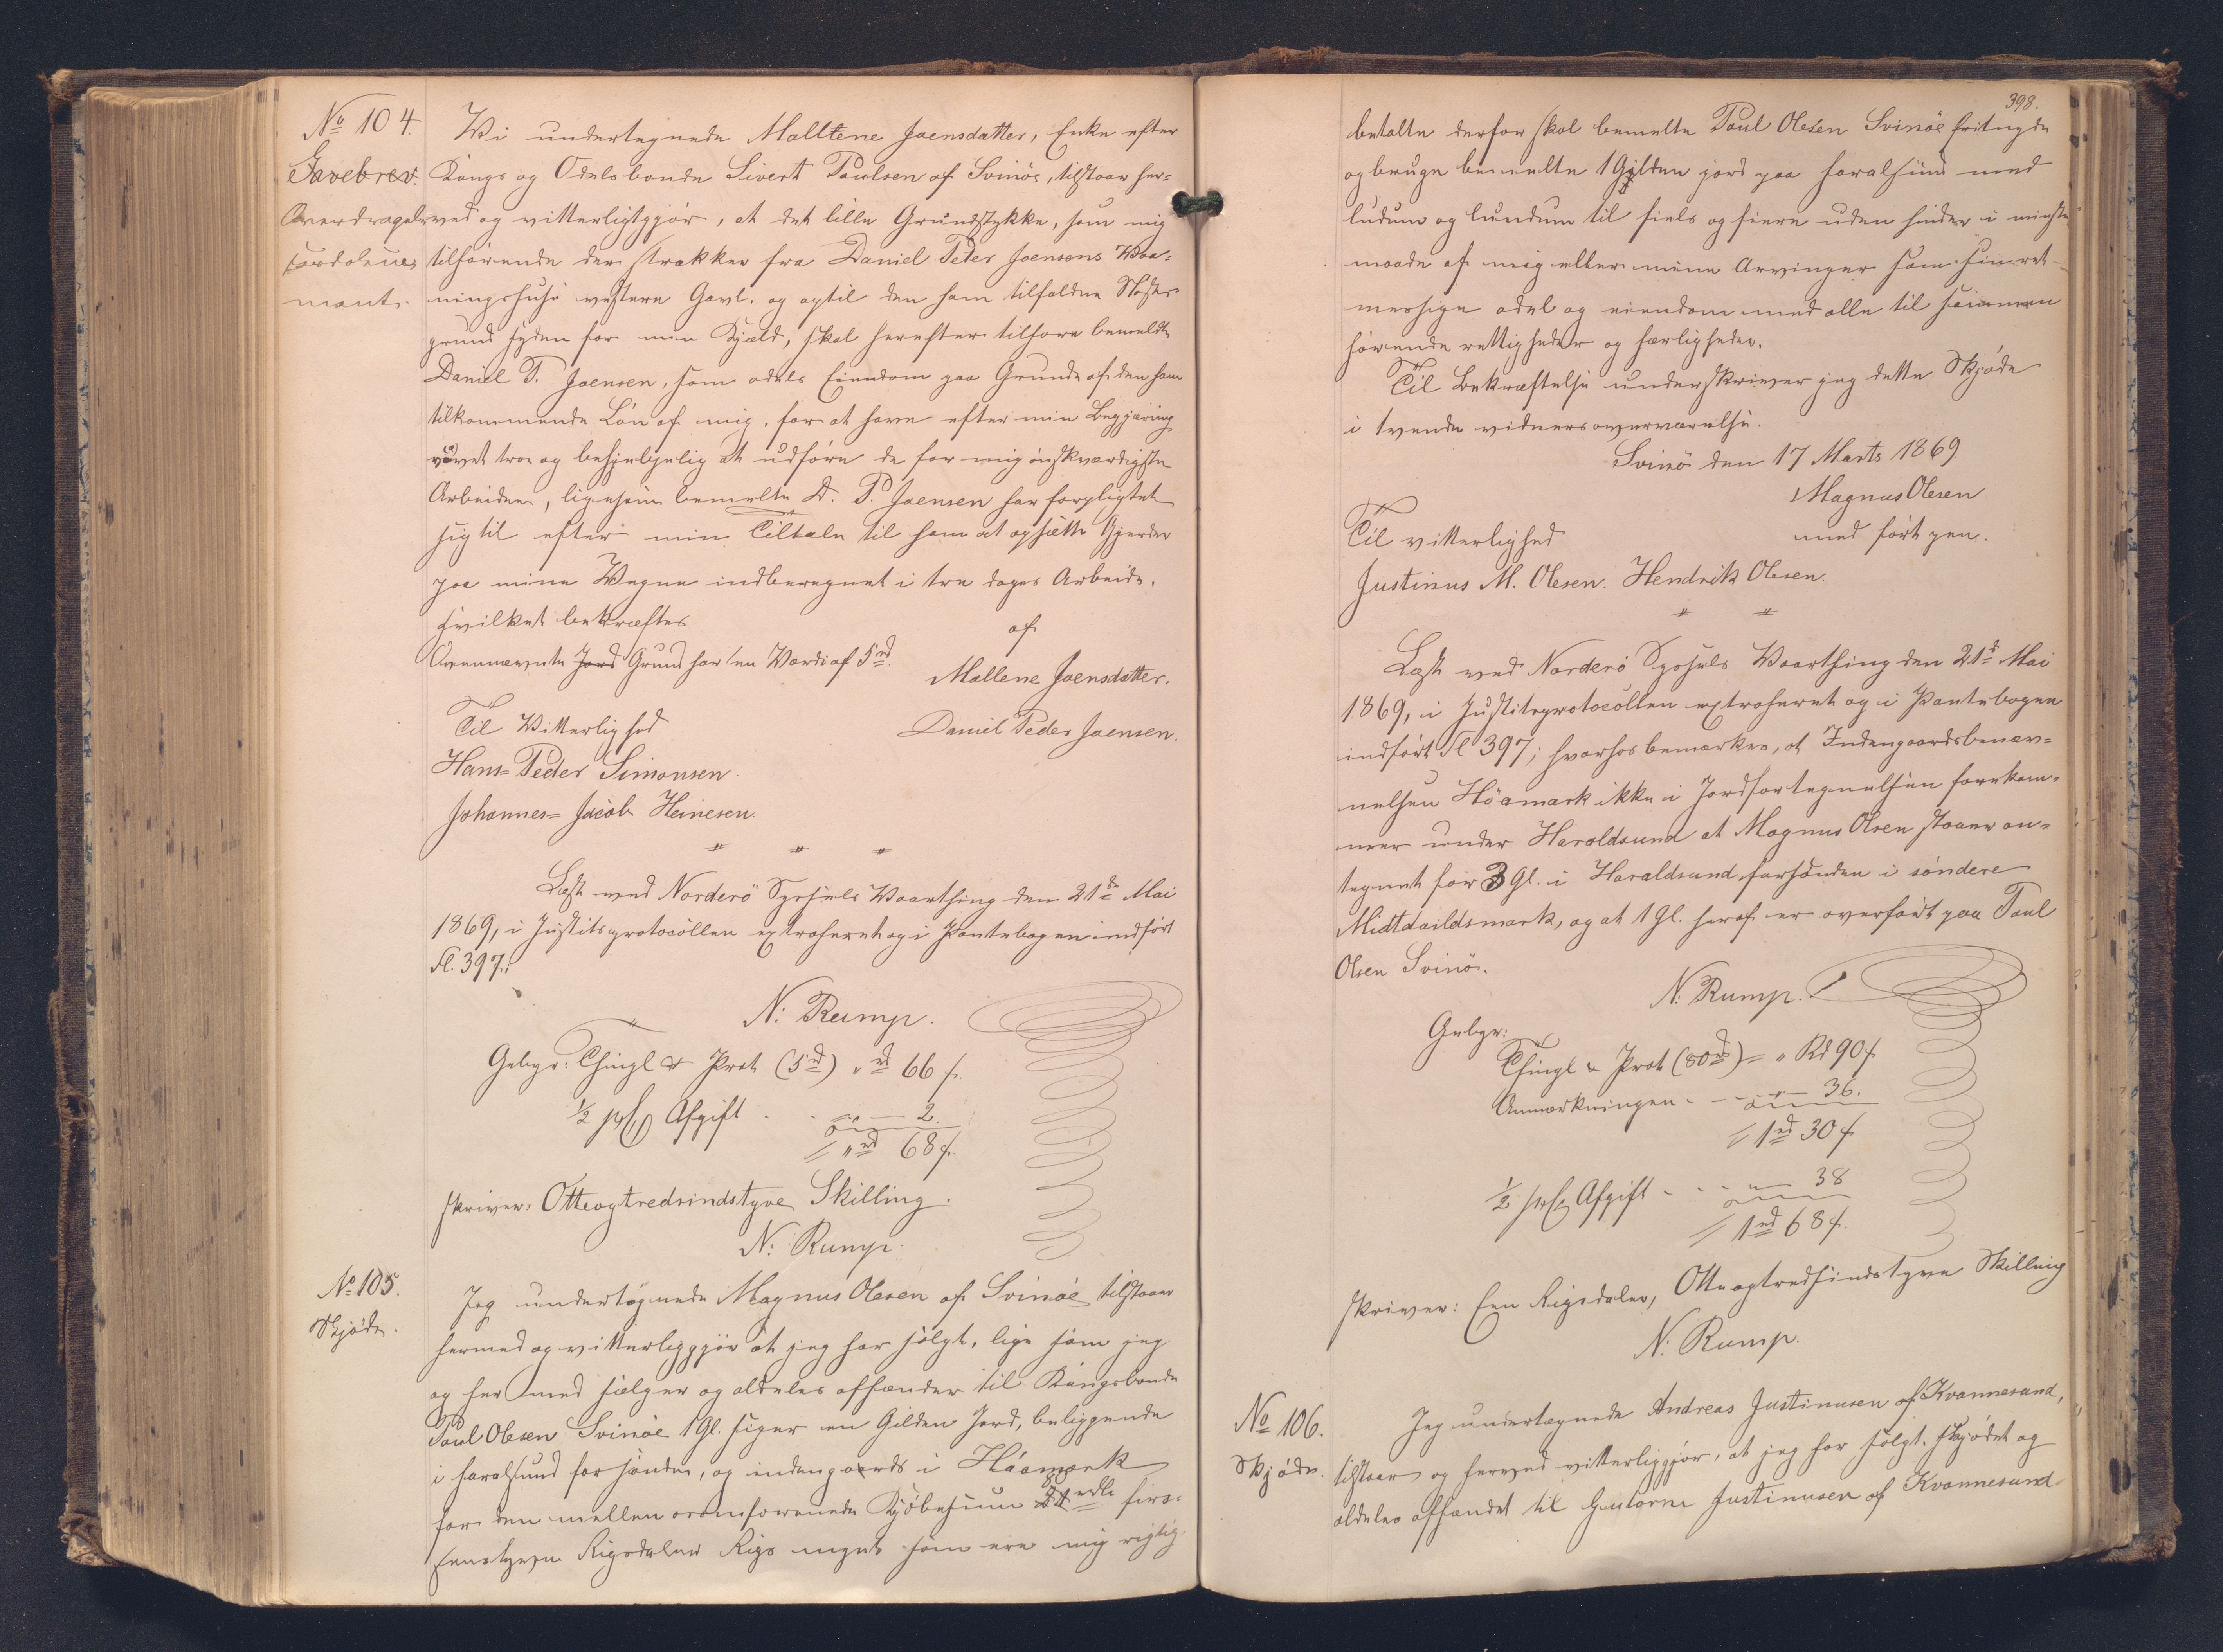 No 104.
Gavebrev.
Overdragelses
mant.
Wi undertegnede Malltene Joensdatter, Enke efter
Kongs og Odelsbonde Sivert Poulsen af Svinöe, tilstaar her=
ved og vitterliggjör, at det lille Grundstykke, som mig
tilhörende der strækker fra Daniel Peter Joensens Waa=
ningshuses vestere Gavl, og optil den ham tilfaldne
grund syden for min Kjæld, skal herefter tilhøre bemeldte
Daniel P. Joensen, som odels Eiendom paa Grund af den ham
tilkommende Lön af mig, for at have efter min Begjæring
været tro og behjelpelig at udföre de for mig önskværdigste
Arbeider, ligesom bemeldte D. P. Joensen har forpligtet
sig til efter min Tiltale til ham at opsætte Gjerder
paa mine Wegne indberegnet i tre dages Arbeide.
hvilket bekræftes
af
Ovennævnte Jord Grund har en Værdi af 5 rd.
Mallene Joensdatter.
Daniel Peder Joensen.
Til Vitterlighed
Hans=Peder Simonsen.
Johannes=Jacob Heinesen.
" " "
Læst ved Norderö Sysels Vaarthing den 21de Mai
1869, i Justitsprotocollen extraheret og i Pantebogen indført
Fl. 397.
N: Rump.
Gebyr: Thingl & Prot (5 rd) " rd 66 s.
1/2 pCt Afgift - - " - 2.
= " rd 68 s.
skriver: Otteogtredsindstyve Skilling.
N: Rump.
No 105.
Skjöde.
Jeg undertegnede Magnus Olesen af Svinöe tilstaar
hermed og vitterliggjör at jeg har solgt, lige som jeg
og her med sælger og aldeles afhænder til Kongsbonde
Poul Olesen Svinöe 1 Gl. siger en Gilden Jord, beliggende
i Haralsund for sönden, og indengaards i Höamark
for den mellem os omforenede Kjöbesum 80 rdlr firs=
Rigsdaler Rigs mynt som ere mig rigtig
398.
betalte derfor skal bemelte Poul Olesen Svinöe fritnyde
og bruge bemelte 1 Gylden jord paa Haralsund med
ludum og lundum til fiels og fiere uden hinder i mindste
maade af mig eller mine Arvinger som sin ret=
messige odel og eiendom med alle til samme
hörende rettigheder og herligheder.
Til Bekræftelse underskriver jeg dette Skjöde
i tvende vidners overværelse.
Svinö den 17 Marts 1869.
Magnus Olesen
med fört pen.
Til vitterlighed
Justinus M. Olesen. Hendrik Olesen.
" "
Læst ved Norderö Syssels Vaarthing den 21d Mai
1869, i Justitsprotocollen extraheret og i Pantebogen
indfört Fl 397; hvorhos bemærkes, at Indengaardsbenæv=
nelsen Höamark ikke i Jordfortegnelsen forekom=
mer under Haroldsund at Magnus Olsen staaer an=
tegnet for 3 Gl. i Haraldsund forsönden i söndere
Midtdaildsmark, og at 1 Gl. heraf er overfört paa Poul
Olsen Svinö.
N: Rump.
Gebyr:
Thingl & Prot (80 rd) = " Rd 90 s
Anmærkningen - - - " - 36.
= 1 rd 30 s
1/2 pCt Afgift - - - " - 38
= 1 rd 68 s.
skriver: Een Rigsdaler, Otteogtredsindstyve Skilling
N: Rump.
No 106.
Skjöde.
Jeg undertegnede Andreas Justinusen af Kvannesund,
tilstaar og herved vitterliggjör, at jeg har solgt, skjödet og
aldeles afhændet til Justinusen af Kvannesund